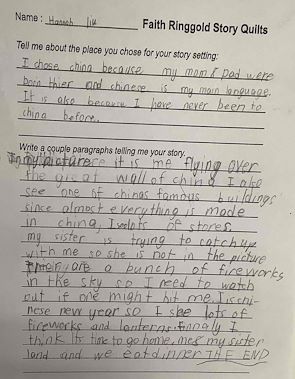 Name: Hannah
Faith Ringgold Story Quilts
Tell me about the place you chose for your story setting:
I chose china because my mom & Dad were
born thier and chinese is my main language.
It is also because I have never been to
china before.
Write a couple paragraphs telling me your story.
In my picture it is me flying over
the great wall of china I also
see one of chinas famous buildings
since almost everything is made
in china, I see lots of stores.
my sister is trying to catch up
with me so she is not in the picture
There are a bunch of fireworks
in the sky so I need to watch
out if one might hit me. Is chi-
nese new year so I see lots of
fireworks and lanterns. finnaly I
think Its time to go home. me & my sister
land and we eat dinner THE END